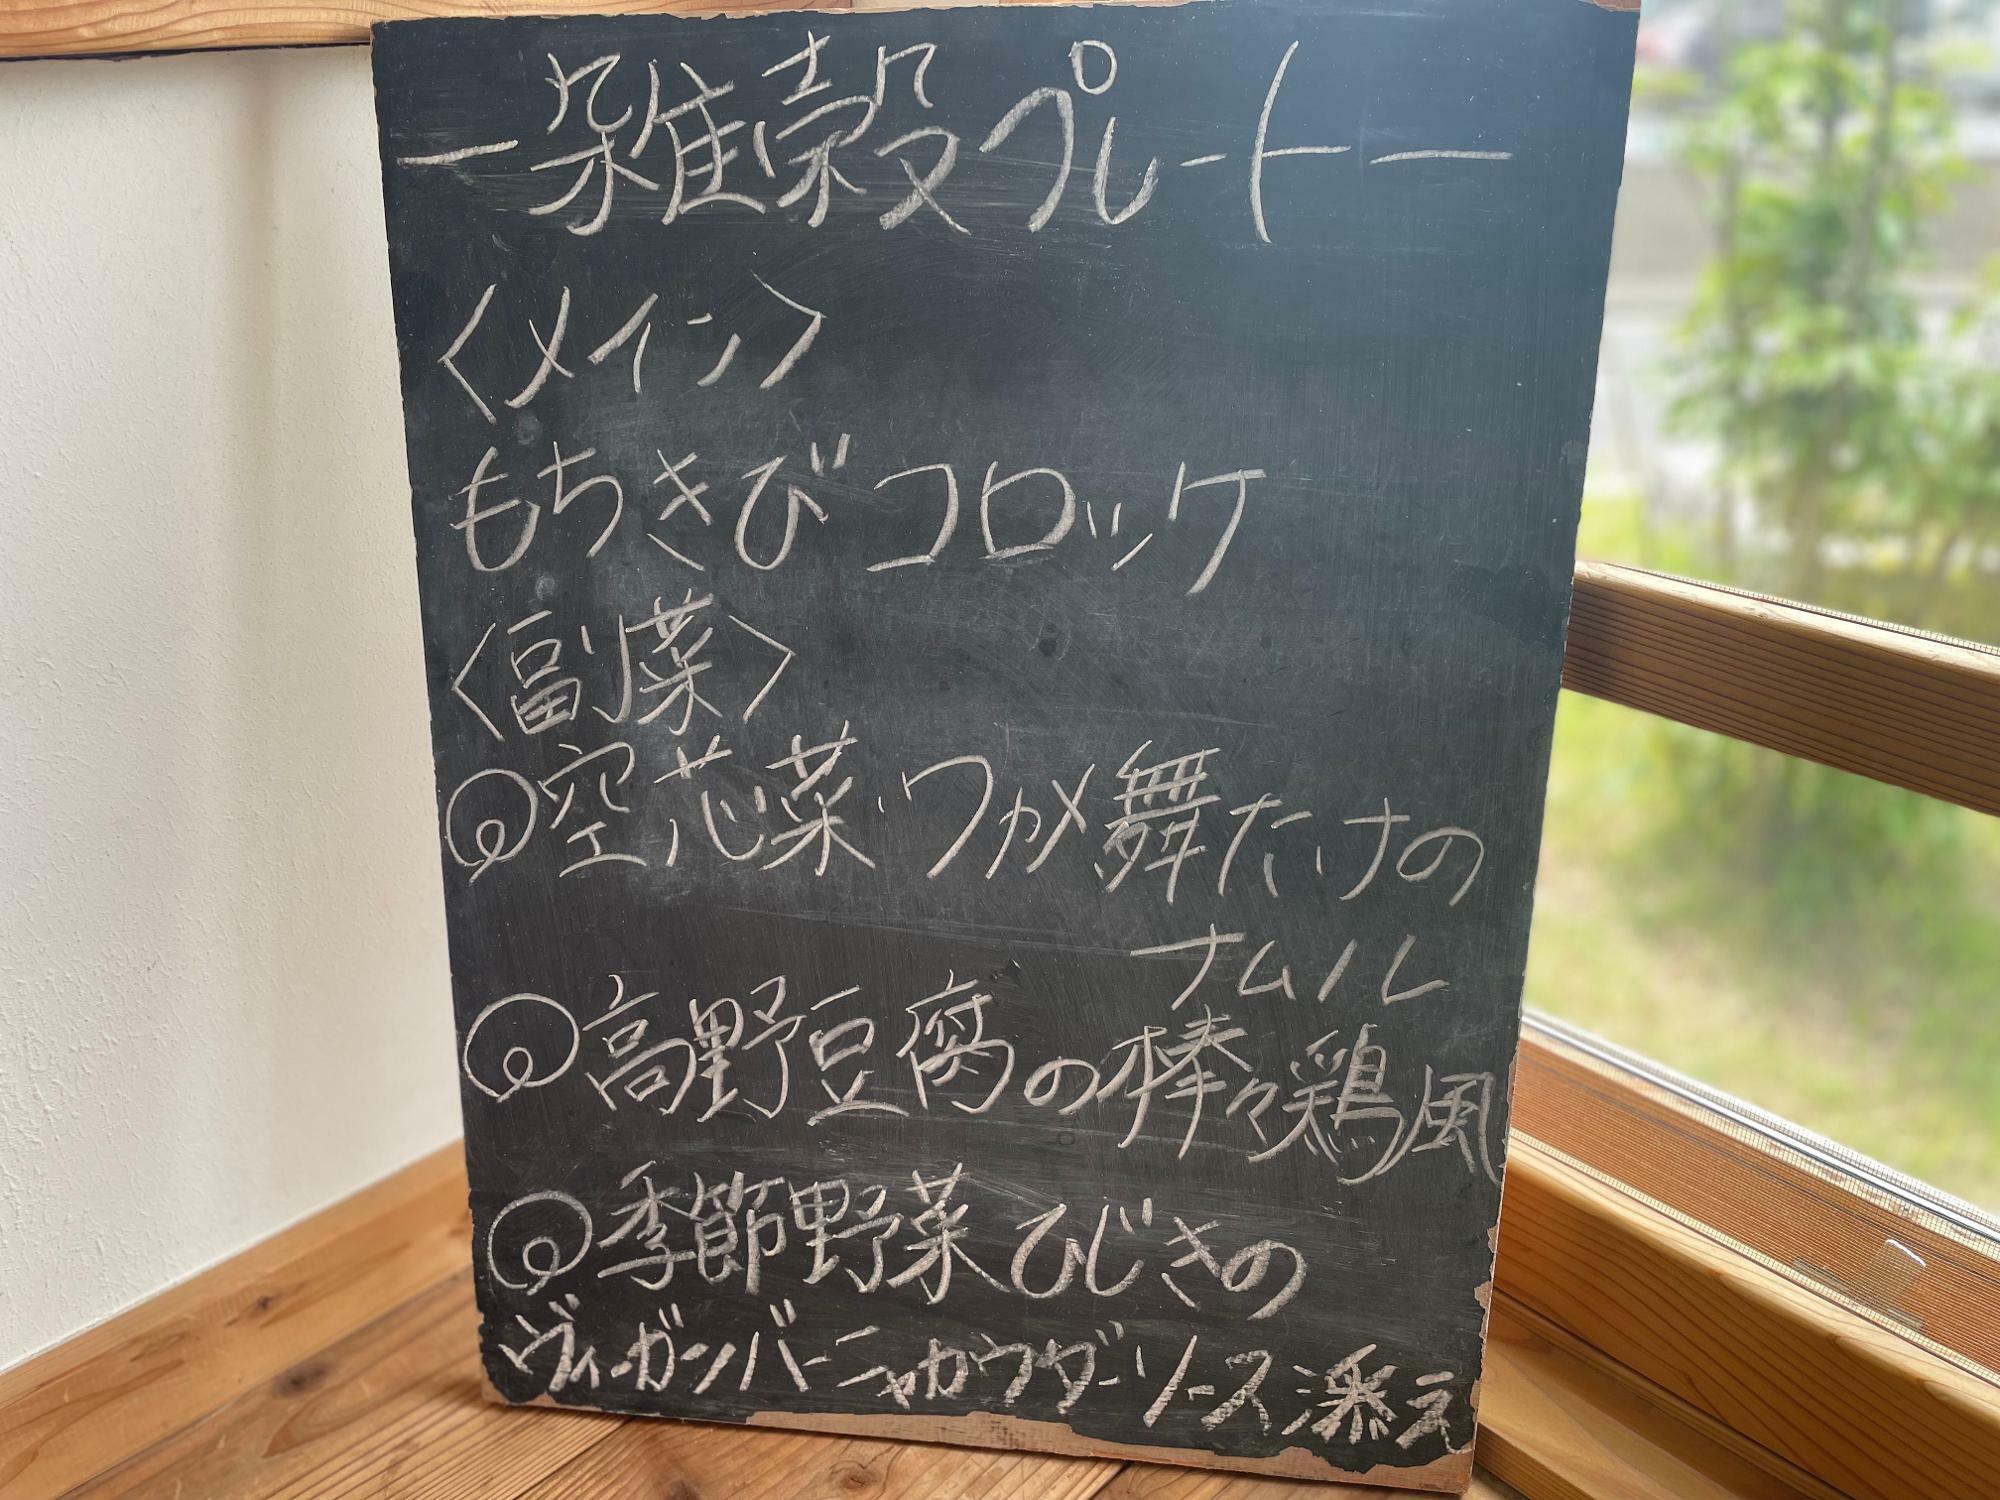 ー雑穀プレートー
〈メイン〉
もちきびコロッケ
〈副菜〉
◎空芯菜・ワカメ舞たけの
ナムル
◎高野豆腐の棒々鶏風
◎季節野菜ひじきの
ヴィーガンバーニャカウダーソース添え